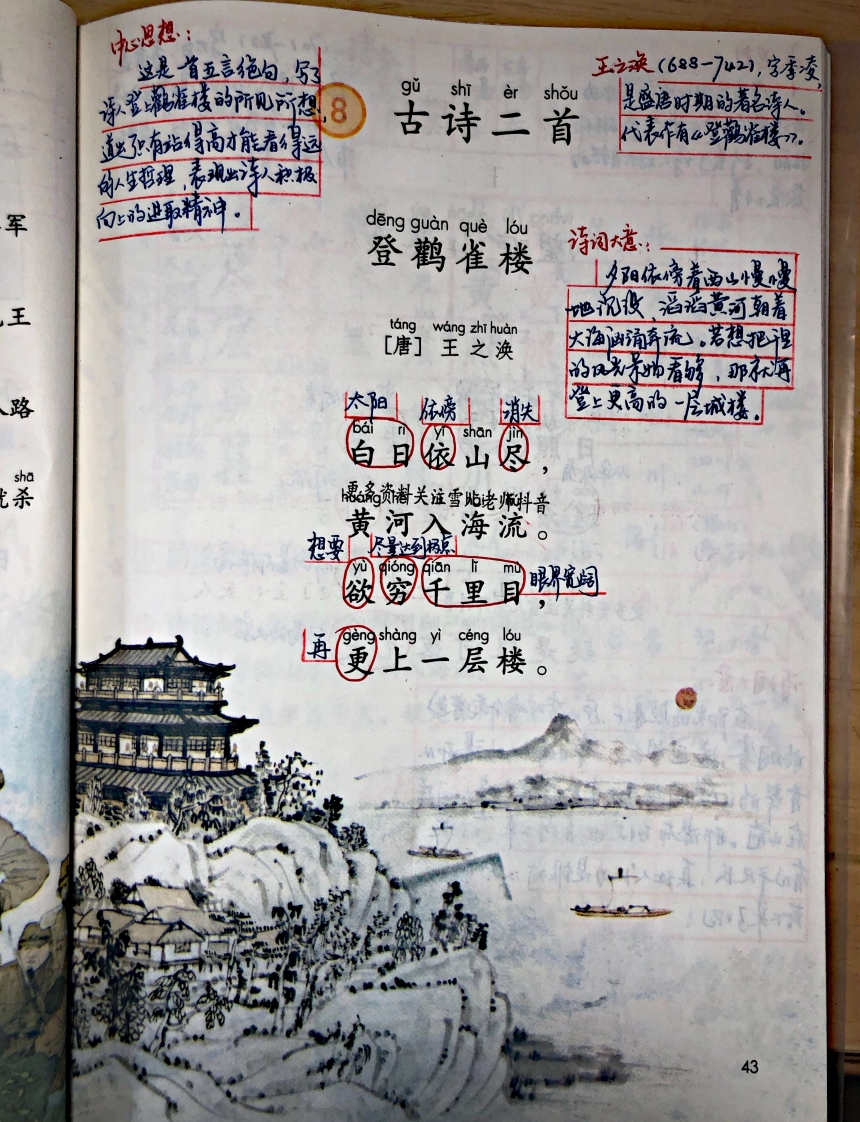 中心思想：
这是一首五言绝句，写了
诗人登上鹳雀楼的所见所想，
道出了只有站得高才能看得远
的人生哲理，表现出诗人积极
向上的进取精神。
8
gǔ shī èr shǒu
古诗二首
王之涣（688-742），字季凌，
是盛唐时期的著名诗人。
代表作有《登鹳雀楼》。
dēng guàn què lóu
登鹳雀楼
táng wáng zhī huàn
［唐］王之涣
诗词大意：
夕阳依傍着西山慢慢
地沉没，滔滔黄河朝着
大海汹涌奔流。若想把
的风光景物看够，那就再
登上更高的一层城楼。
太阳 依傍 消失
bái rì yī shān jìn
白日依山尽，
更多资料关注雪 老师抖音
黄河入海流。
想要 尽量达到极点
yù qióng qiān lǐ mù
欲穷千里目， 眼界宽阔
gèng shàng yì céng lóu
再 更上一层楼。
43
军
王
路
shā
杀